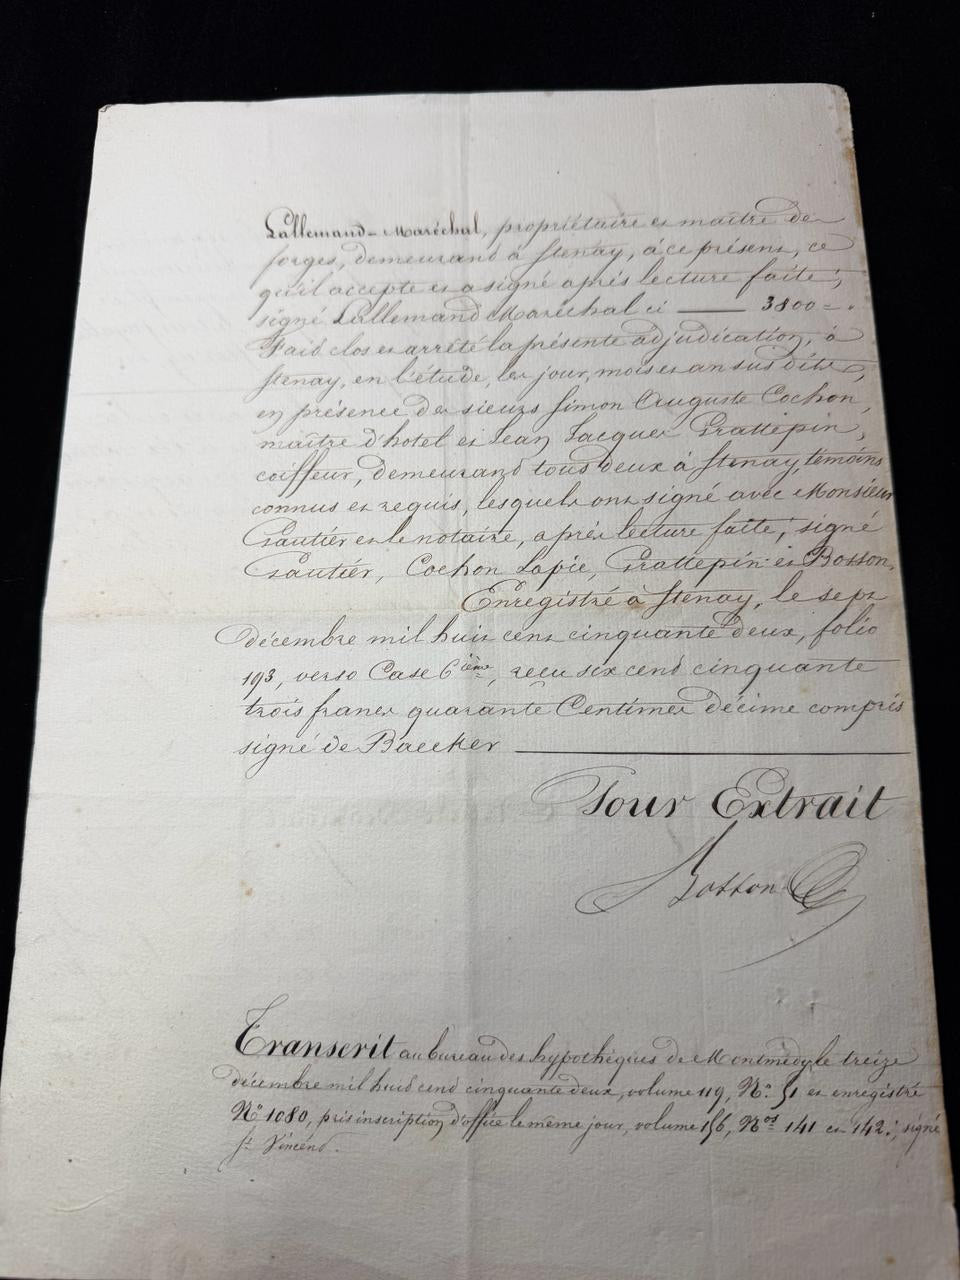 Lallemand-Maréchal, propriétaire et maître de
forges, demeurant à Stenay, à ce présent, ce
qu'il accepte et a signé après lecture faite;
signé Lallemand Maréchal ci —— 3800 = .
Fait clos et arrêté la présente adjudication, à
Stenay, en l'étude, les jour, mois et an sus dits,
en présence des sieurs Simon Auguste Cochon,
maître d'hotel et Jean Jacques Grattepin,
coiffeur, demeurant tous deux à Stenay, témoins
connus et requis, lesquels ont signé avec Monsieur
Gautier et le notaire, après lecture faite; signé
Gautier, Cochon Lapie, Grattepin et Bosson.
Enregistré à Stenay, le sept
décembre mil huit cent cinquante deux, folio
193, verso Case 6ième, reçu six cent cinquante
trois francs quarante Centimes décime compris
signé de Baecker ——
Pour Extrait
Bosson
Transcrit au bureau des hypothèques de Montmédy le treize
décembre mil huit cent cinquante deux, volume 119, N.° 51 et enregistré
N° 1080, pris inscription d'office le même jour, volume 156, Nos 141 et 142; signé
St Vincent.